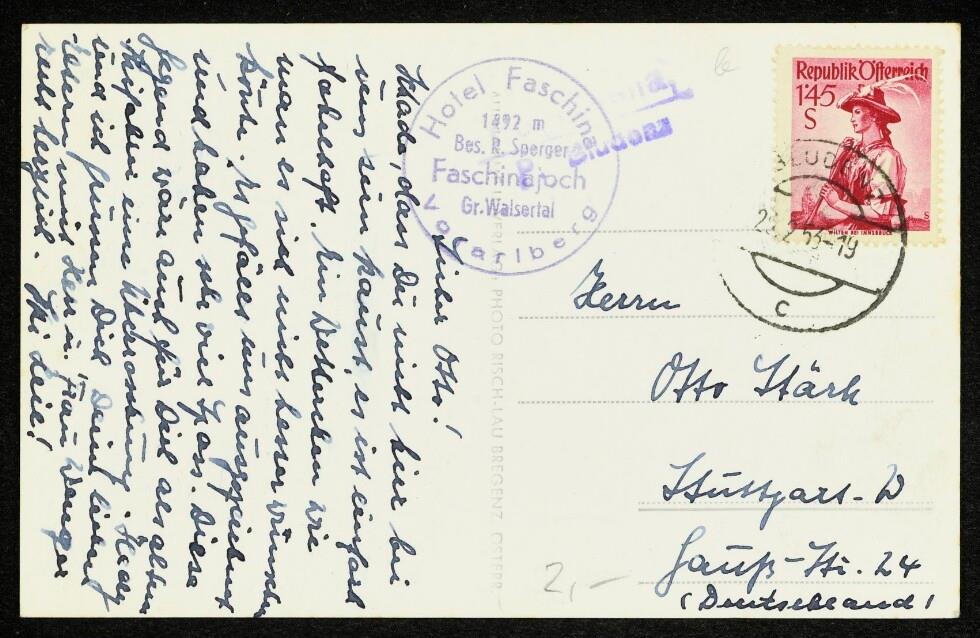 Lieber Otto!
Schade, dass Du nicht hier bei
uns sein kannst, es ist einfach
fabelhaft. Ein Wetterchen wie
man es sich nicht besser wünschen
könnte. Es gefällt uns ausgezeichnet
und haben sehr viel Spass. Diese
Gegend wäre auch für Dich als alten
Skihasen eine Überraschung. Hedy
und ich grüssen Dich, Deine lieben
Eltern und Herr u. Frau Wenger
recht herzlich. Ski Heil!
Hotel Faschina
1492 m
Bes. R. Sperger
Faschinajoch
Gr. Walsertal
Vorarlberg
Bludenz
PHOTO RISCH-LAU BREGENZ ÖSTERR.
Republik Österreich
1'45
S
WILTEN BEI INNSBRUCK
BLUDENZ
53-19
c
Herrn
Otto Stärk
Stuttgart-W
Gauß-Str. 24
(Deutschland)
2,-